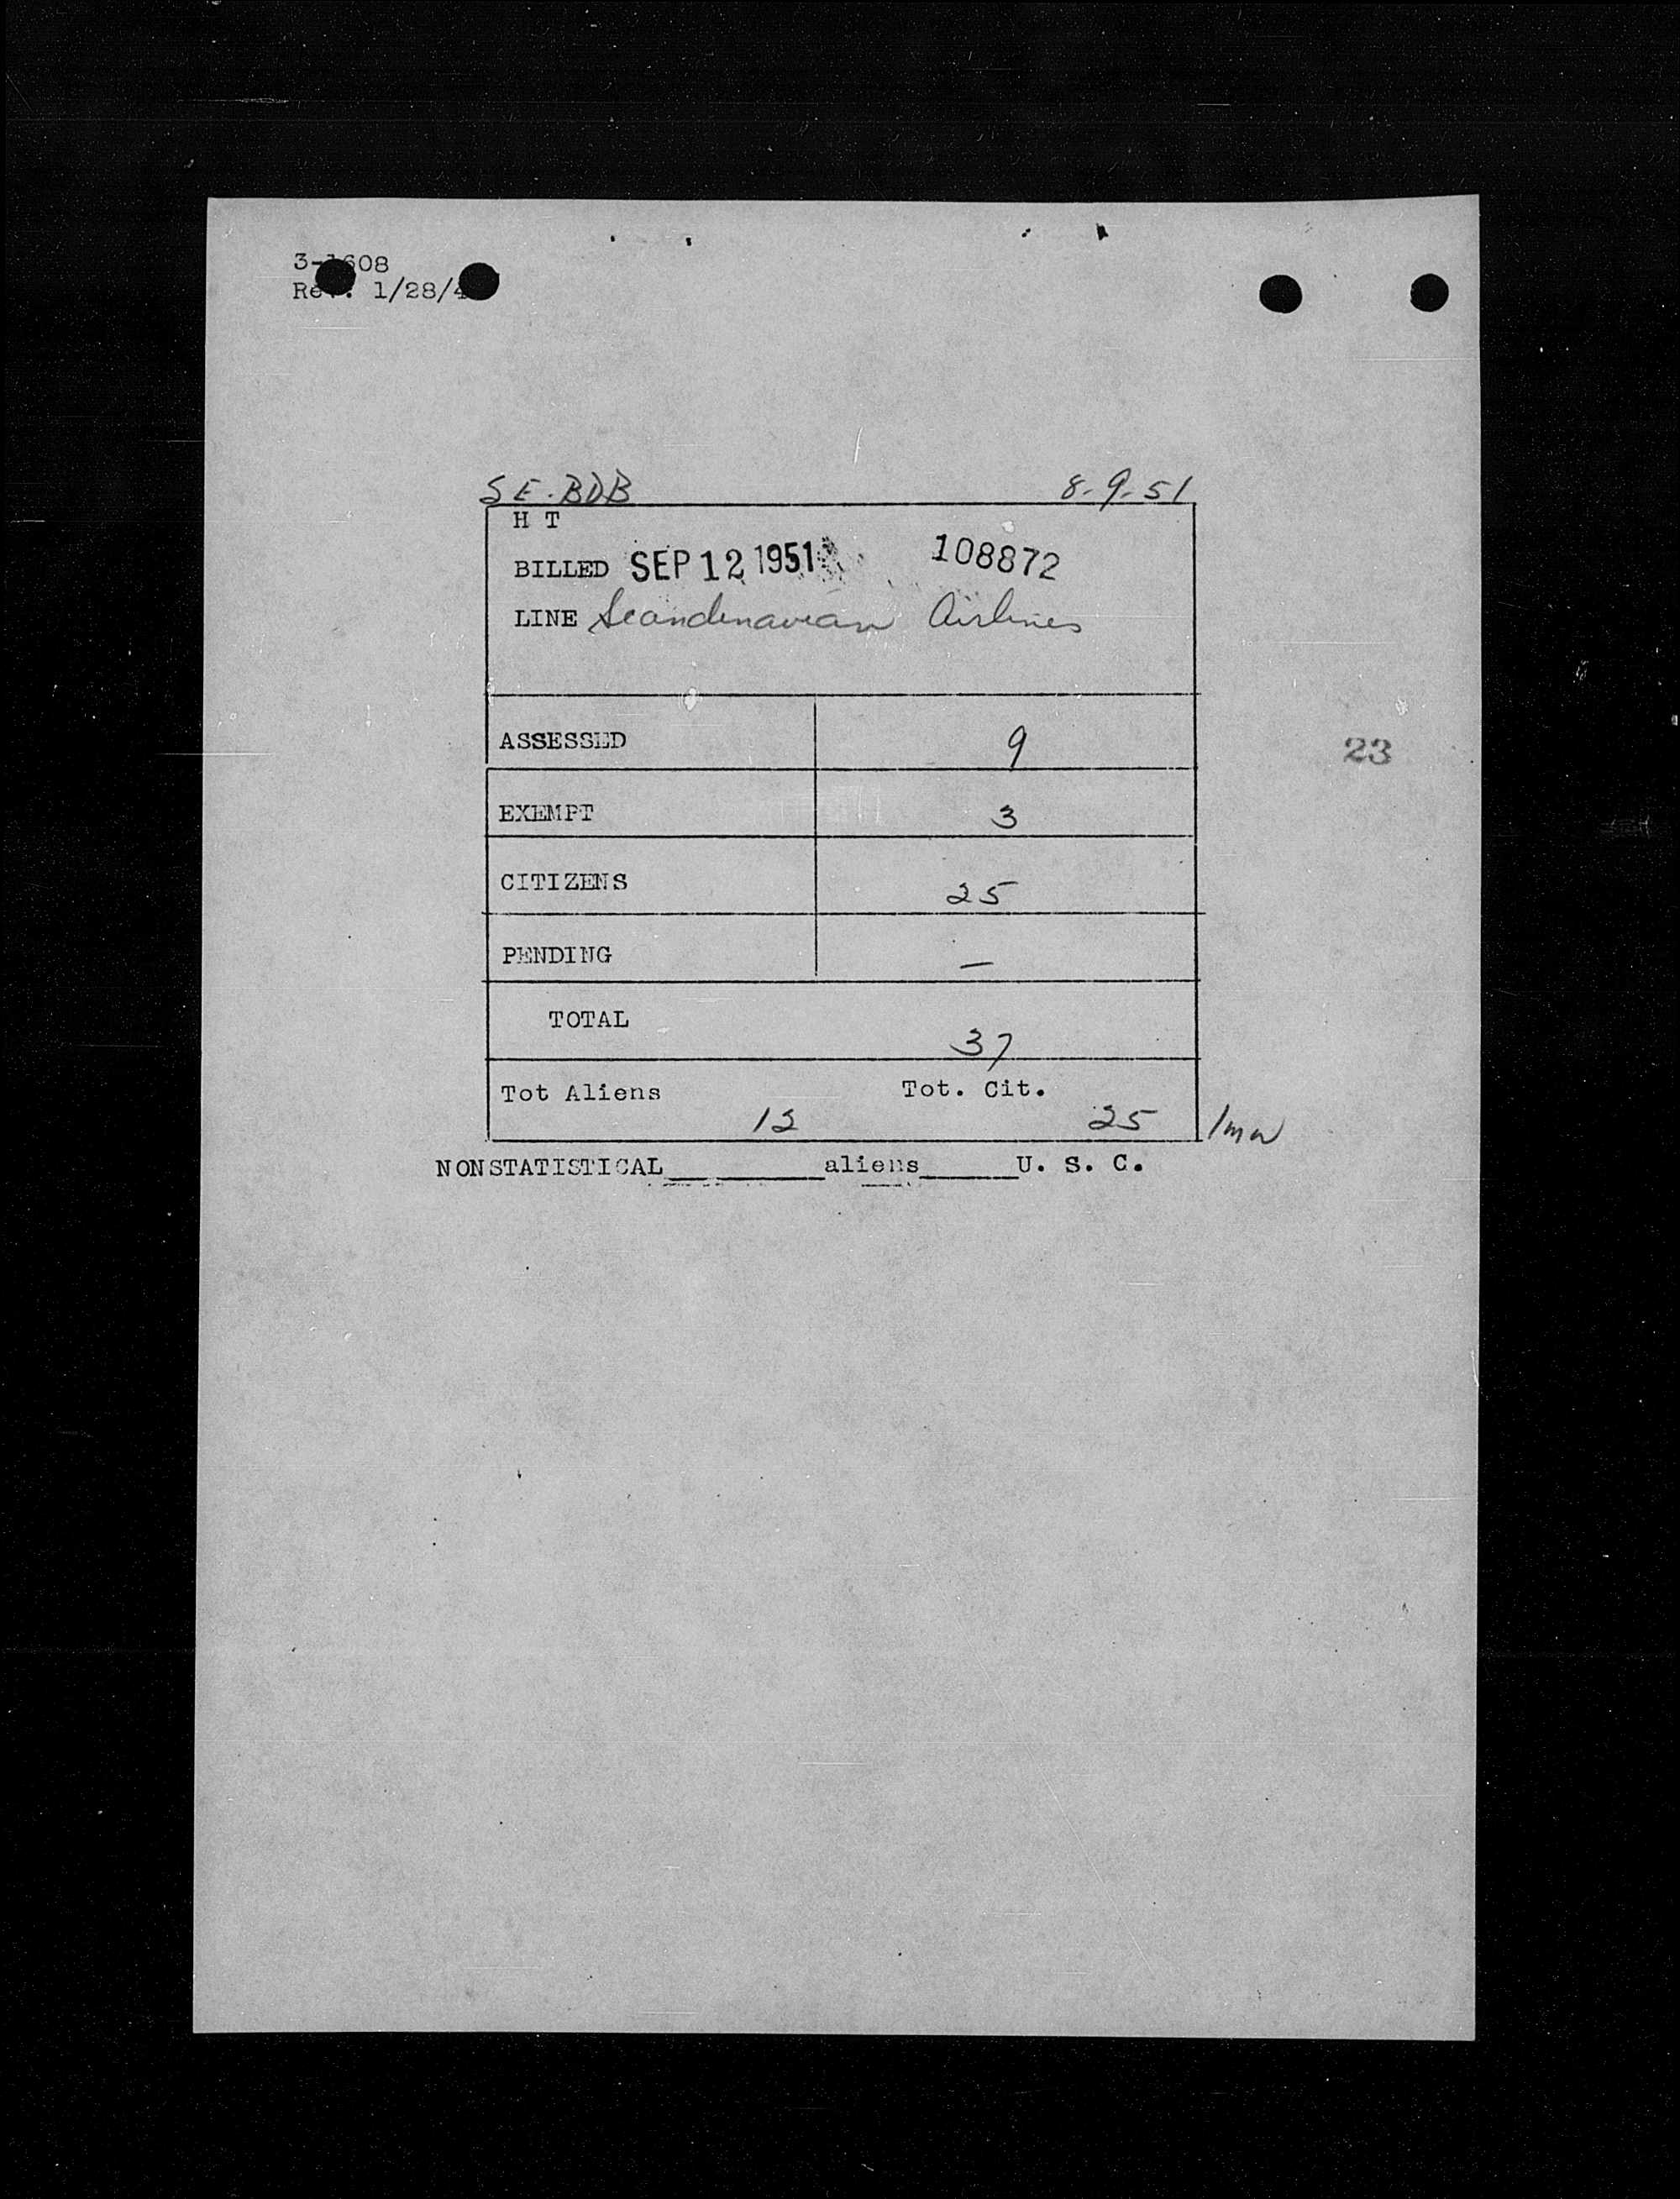 3-1608
Rev. 1/28/4
SE-BDB 8-9-51
H T
BILLED SEP 12 1951 108872
LINE Scandinavian Airlines
ASSESSED 9
23
EXEMPT 3
CITIZENS 25
PENDING —
TOTAL 37
Tot Aliens Tot. Cit.
12 25
NONSTATISTICAL aliens U. S. C.